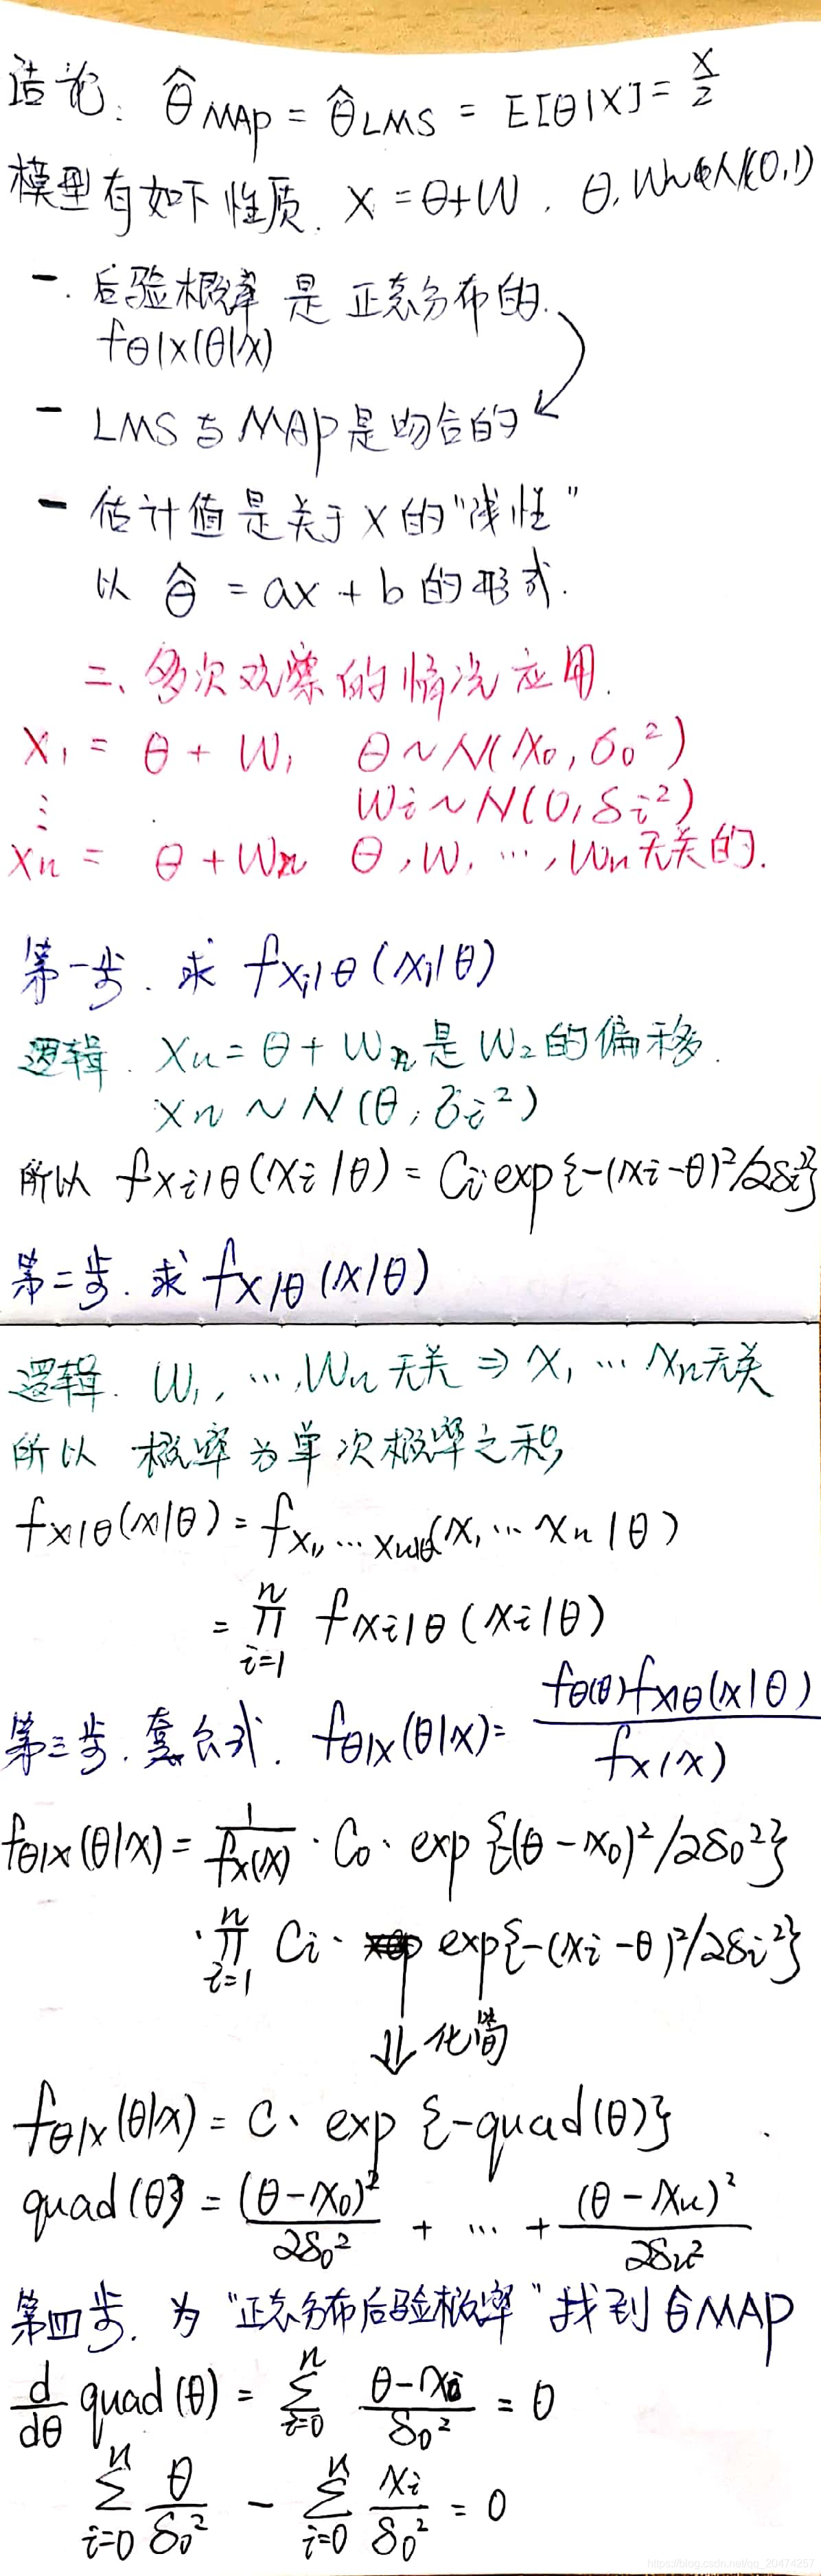 结论: θ̂MAP = θ̂LMS = E[θ|X] = X/2
模型有如下性质. X = θ+W , θ, W ~ N(0,1)
一. 后验概率 是 正态分布的.
fθ|X(θ|X)
— LMS 与 MAP 是吻合的
— 估计值是关于 X 的“线性”
以 θ̂ = ax + b 的形式.
二、多次观察的情况应用.
X1 = θ + W1 θ ~ N(X0, σ0²)
⋮ Wi ~ N(0, δi²)
Xn = θ + Wn θ, W1 …, Wn 无关的.
第一步. 求 fXi|θ (Xi|θ)
逻辑. Xn = θ + Wn 是 W2 的偏移.
Xn ~ N (θ, δi²)
所以 fXi|θ(Xi|θ) = Ci exp {-(Xi-θ)²/2δi²}
第二步. 求 fX|θ (X|θ)
逻辑. W1, …, Wn 无关 ⇒ X1 … Xn无关
所以 概率为单次概率之积,
fX|θ(X|θ) = fX1,…Xn|θ(X1 … Xn|θ)
= ∏ⁿi=1 fXi|θ (Xi|θ)
第三步. 套公式. fθ|X(θ|X) = fθ(θ)fX|θ(X|θ) / fX(X)
fθ|X(θ|X) = 1/fX(X) · C0 · exp {-(θ-X0)²/2δ0²}
· ∏ⁿi=1 Ci · exp{-(Xi-θ)²/2δi²}
⇓ 化简
fθ|X(θ|X) = C · exp {-quad(θ)}
quad(θ) = (θ-X0)²/2δ0² + … + (θ-Xn)²/2δn²
第四步. 为“正态分布后验概率”找到 θ̂MAP
d/dθ quad(θ) = Σⁿi=0 (θ-Xi)/δ0² = 0
Σⁿi=0 θ/δ0² - Σⁿi=0 Xi/δ0² = 0
https://blog.csdn.net/qq_20474257